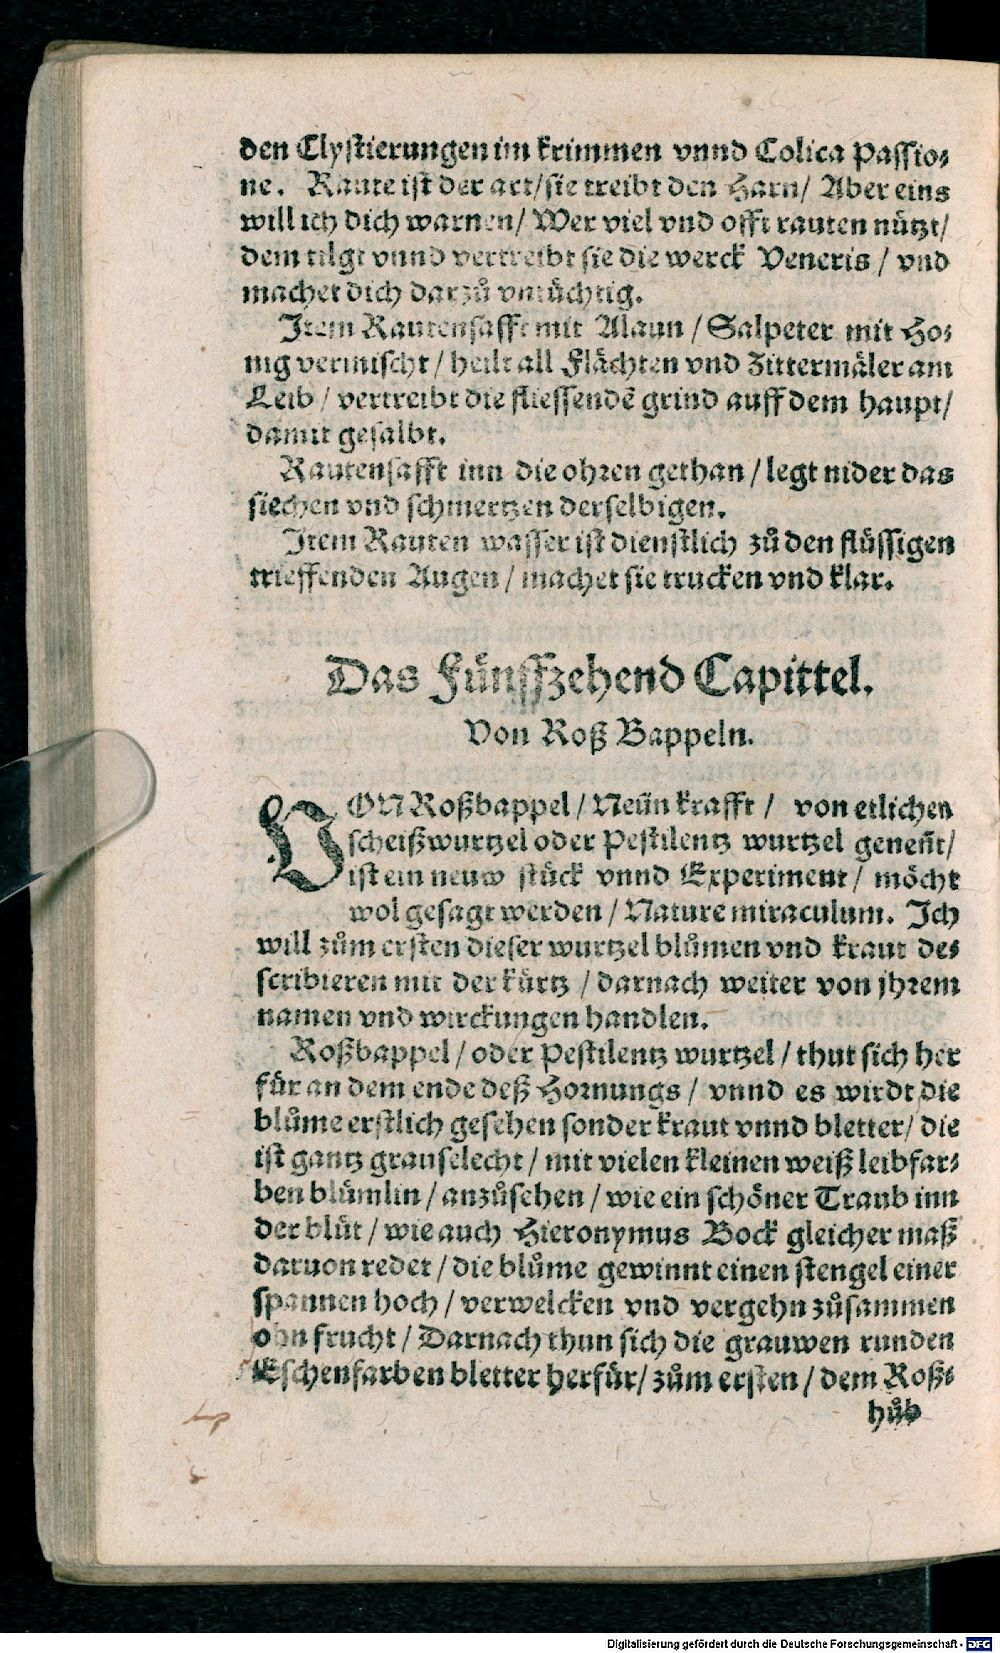 den Clyſtierungen im krimmen vnnd Colica Paſſio⸗
ne. Raute iſt der art/ſie treibt den Harn/ Aber eins
will ich dich warnen/ Wer viel vnd offt rauten nützt/
dem tilgt vnnd vertreibt ſie die werck Veneris / vnd
machet dich darzuͦ vntüchtig.
Item Rautenſafft mit Alaun / Salpeter mit Ho⸗
nig vermiſcht / heilt all Flächten vnd Zittermäler am
Leib / vertreibt die flieſſendẽ grind auff dem haupt/
damit geſalbt.
Rautenſafft inn die ohꝛen gethan / legt nider das
ſiechen vnd ſchmertzen derſelbigen.
Item Rauten waſſer iſt dienſtlich zuͦ den flüſſigen
trieffenden Augen / machet ſie trucken vnd klar.
Das Fünffzehend Capittel.
Von Roß Bappeln.
VON Roßbappel / Neün krafft / von etlichen
ſcheißwurtzel oder Peſtilentz wurtzel geneñt/
iſt ein neuw ſtück vnnd Experiment / möcht
wol geſagt werden / Nature miraculum. Ich
will zuͦm erſten dieſer wurtzel bluͦmen vnd kraut de⸗
ſcribieren mit der kürtz / darnach weiter von jhꝛem
namen vnd wirckungen handlen.
Roßbappel / oder Peſtilentz wurtzel / thut ſich her
für an dem ende deß Hoꝛnungs / vnnd es wirdt die
bluͦme erſtlich geſehen ſonder kraut vnnd bletter/ die
iſt gantz grauſelecht / mit vielen kleinen weiß leibfar⸗
ben blümlin / anzuͦſehen / wie ein ſchöner Traub inn
der blüt / wie auch Hieronymus Bock gleicher maß
daruon redet / die bluͦme gewinnt einen ſtengel einer
ſpannen hoch / verwelcken vnd vergehn zuͦſammen
ohn frucht / Darnach thun ſich die grauwen runden
Eſchenfarben bletter herfür/ zuͦm erſten / dem Roß⸗
huͦb
Digitalisierung gefördert durch die Deutsche Forschungsgemeinschaft - DFG